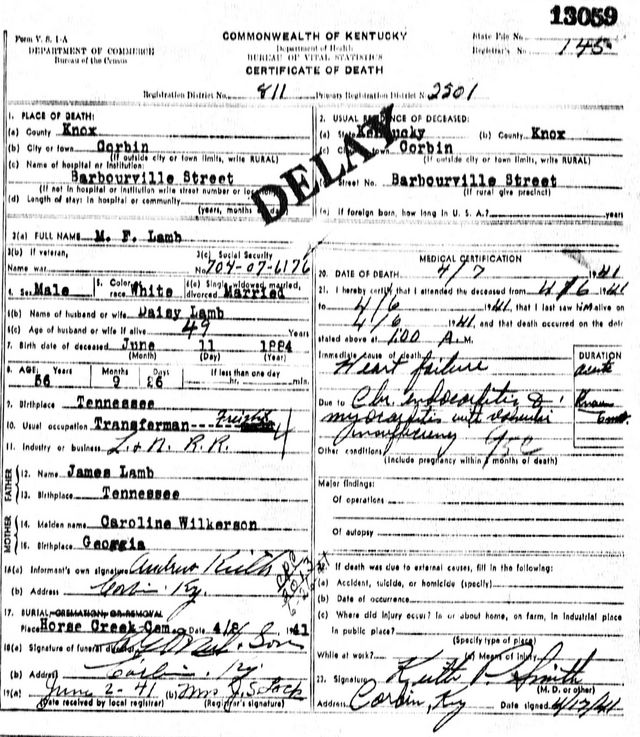 13059
Form V. S. 1-A
DEPARTMENT OF COMMERCE
Bureau of the Census
COMMONWEALTH OF KENTUCKY
Department of Health
BUREAU OF VITAL STATISTICS
CERTIFICATE OF DEATH
State File No.
Registrar's No. 145
Registration District No. 811 Primary Registration District N. 2501
DELAY
1. PLACE OF DEATH:
(a) County Knox
(b) City or town Corbin
(If outside city or town limits, write RURAL)
(c) Name of hospital or institution:
Barbourville Street
(If not in hospital or institution write street number or
(d) Length of stay: In hospital or community
(years, months
2. USUAL OF DECEASED:
(a) State Kentucky (b) County Knox
(c) City or town Corbin
(If outside city or town limits, write RURAL)
Street No. Barbourville Street
(If rural give precinct)
(e) If foreign born, how long in U. S. A.? years
3(a) FULL NAME M. F. Lamb
3(b) If veteran,
Name war
3(c) Social Security
No. 704-07-6176
4. Sex Male
5. Color race White
6(a) Single, widowed, married, divorced Married
6(b) Name of husband or wife Daisy Lamb
6(c) Age of husband or wife if alive 49 Years
7. Birth date of deceased June 11 1884
(Month) (Day) (Year)
8. AGE: Years Months Days If less than one day
56 9 26 hr. min.
9. Birthplace Tennessee
10. Usual occupation Transferman Freight
11. Industry or business L & N. R. R.
FATHER
12. Name James Lamb
13. Birthplace Tennessee
MOTHER
14. Maiden name Caroline Wilkerson
15. Birthplace Georgia
16(a) Informant's own signature Andrew
(b) Address Corbin Ky.
17. BURIAL, CREMATION, OR REMOVAL
Place Horse Creek Cem. Date 4/8 1941
18(a) Signature of funeral director Son
(b) Address Corbin, Ky.
19(a) June 2-41 (b) Mrs J. S.
(Date received by local registrar) (Registrar's signature)
MEDICAL CERTIFICATION
20. DATE OF DEATH 4/7 1941
21. I hereby certify that I attended the deceased from 4/6 1941
to 4/6 1941, that I last saw him alive on
4/6 1941, and that death occurred on the date
stated above at 1:00 A.M.
Immediate cause of death
Heart failure
DURATION
acute
Due to Chr. endocarditis &
myocarditis with valvular
insufficiency 95C
Other conditions
(Include pregnancy within 3 months of death)
Major findings:
Of operations
Of autopsy
22. If death was due to external causes, fill in the following:
(a) Accident, suicide, or homicide (specify)
(b) Date of occurrence
(c) Where did injury occur? In or about home, on farm, in industrial place
in public place?
(Specify type of place)
While at work? (e) Means of Injury
23. Signature Keith P. Smith
(M. D. or other)
Address Corbin, Ky Date signed 4/12/41